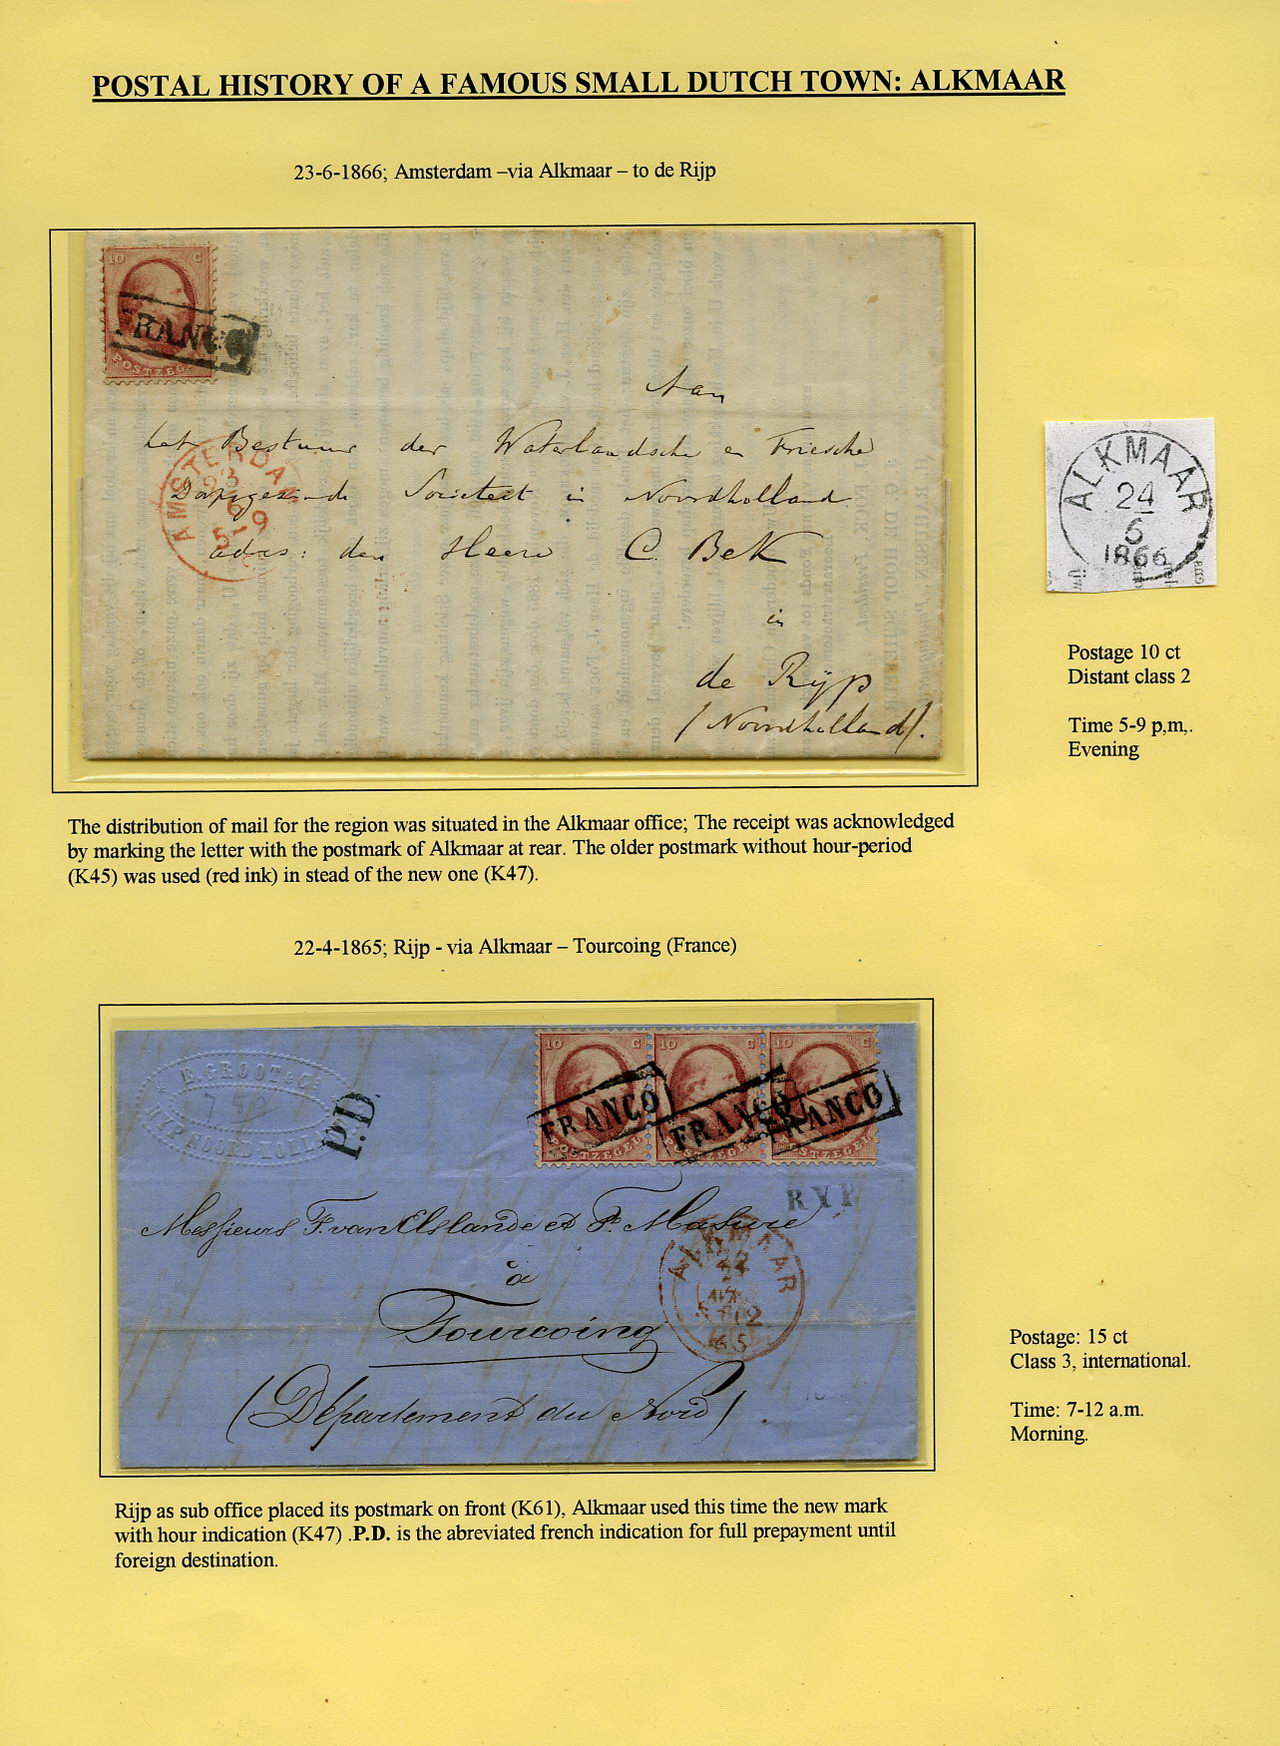 POSTAL HISTORY OF A FAMOUS SMALL DUTCH TOWN: ALKMAAR
23-6-1866; Amsterdam –via Alkmaar – to de Rijp
10 C
FRANCO
POSTZEGEL
Aan
het Bestuur der Waterlandsche en Friesche
Doopsgezinde Societeit in Noordholland
adres: den Heere C. Bek
in
de Rijp
(Noordholland).
AMSTERDAM
23
6
5-9
ALKMAAR
24
6
1866
Postage 10 ct
Distant class 2
Time 5-9 p,m,.
Evening
The distribution of mail for the region was situated in the Alkmaar office; The receipt was acknowledged
by marking the letter with the postmark of Alkmaar at rear. The older postmark without hour-period
(K45) was used (red ink) in stead of the new one (K47).
22-4-1865; Rijp - via Alkmaar – Tourcoing (France)
10 C 10 C 10 C
FRANCO FRANCO FRANCO
POSTZEGEL POSTZEGEL POSTZEGEL
K. GROOT & Co
RYP NOORD HOLLAND
P.D.
RYP
Messieurs F. van Elslande et P. Masure
à
Tourcoing
(Département du Nord).
ALKMAAR
22
65
Postage: 15 ct
Class 3, international.
Time: 7-12 a.m.
Morning.
Rijp as sub office placed its postmark on front (K61), Alkmaar used this time the new mark
with hour indication (K47) .P.D. is the abreviated french indication for full prepayment until
foreign destination.